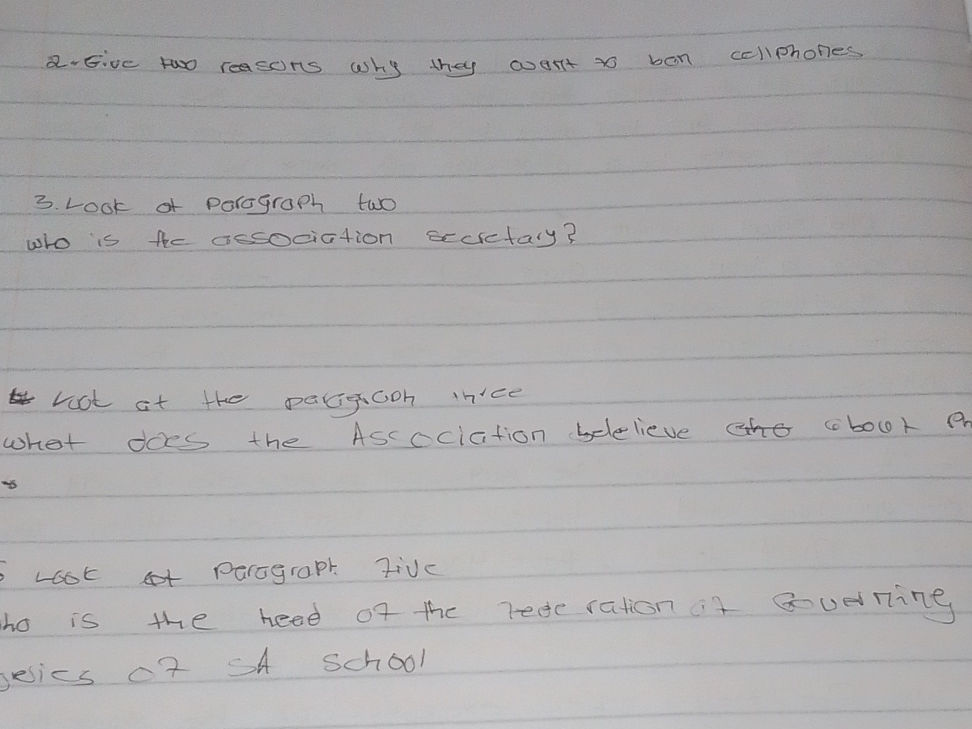 2. Give two reasons why they want to ban cellphones
3. Look at Paragraph two
who is the association secretary?
Look at the paragraph three
what does the Association belelieve about Ph
s
5 Look at Paragraph five
ho is the head of the Federation of Governing
of SA school